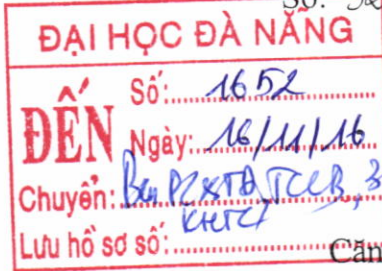 Số:
ĐẠI HỌC ĐÀ NẴNG
ĐẾN
Số: 1652
Ngày: 16/11/16
Chuyển: Ban TCCB,
KHTC
Lưu hồ sơ số:
Căn